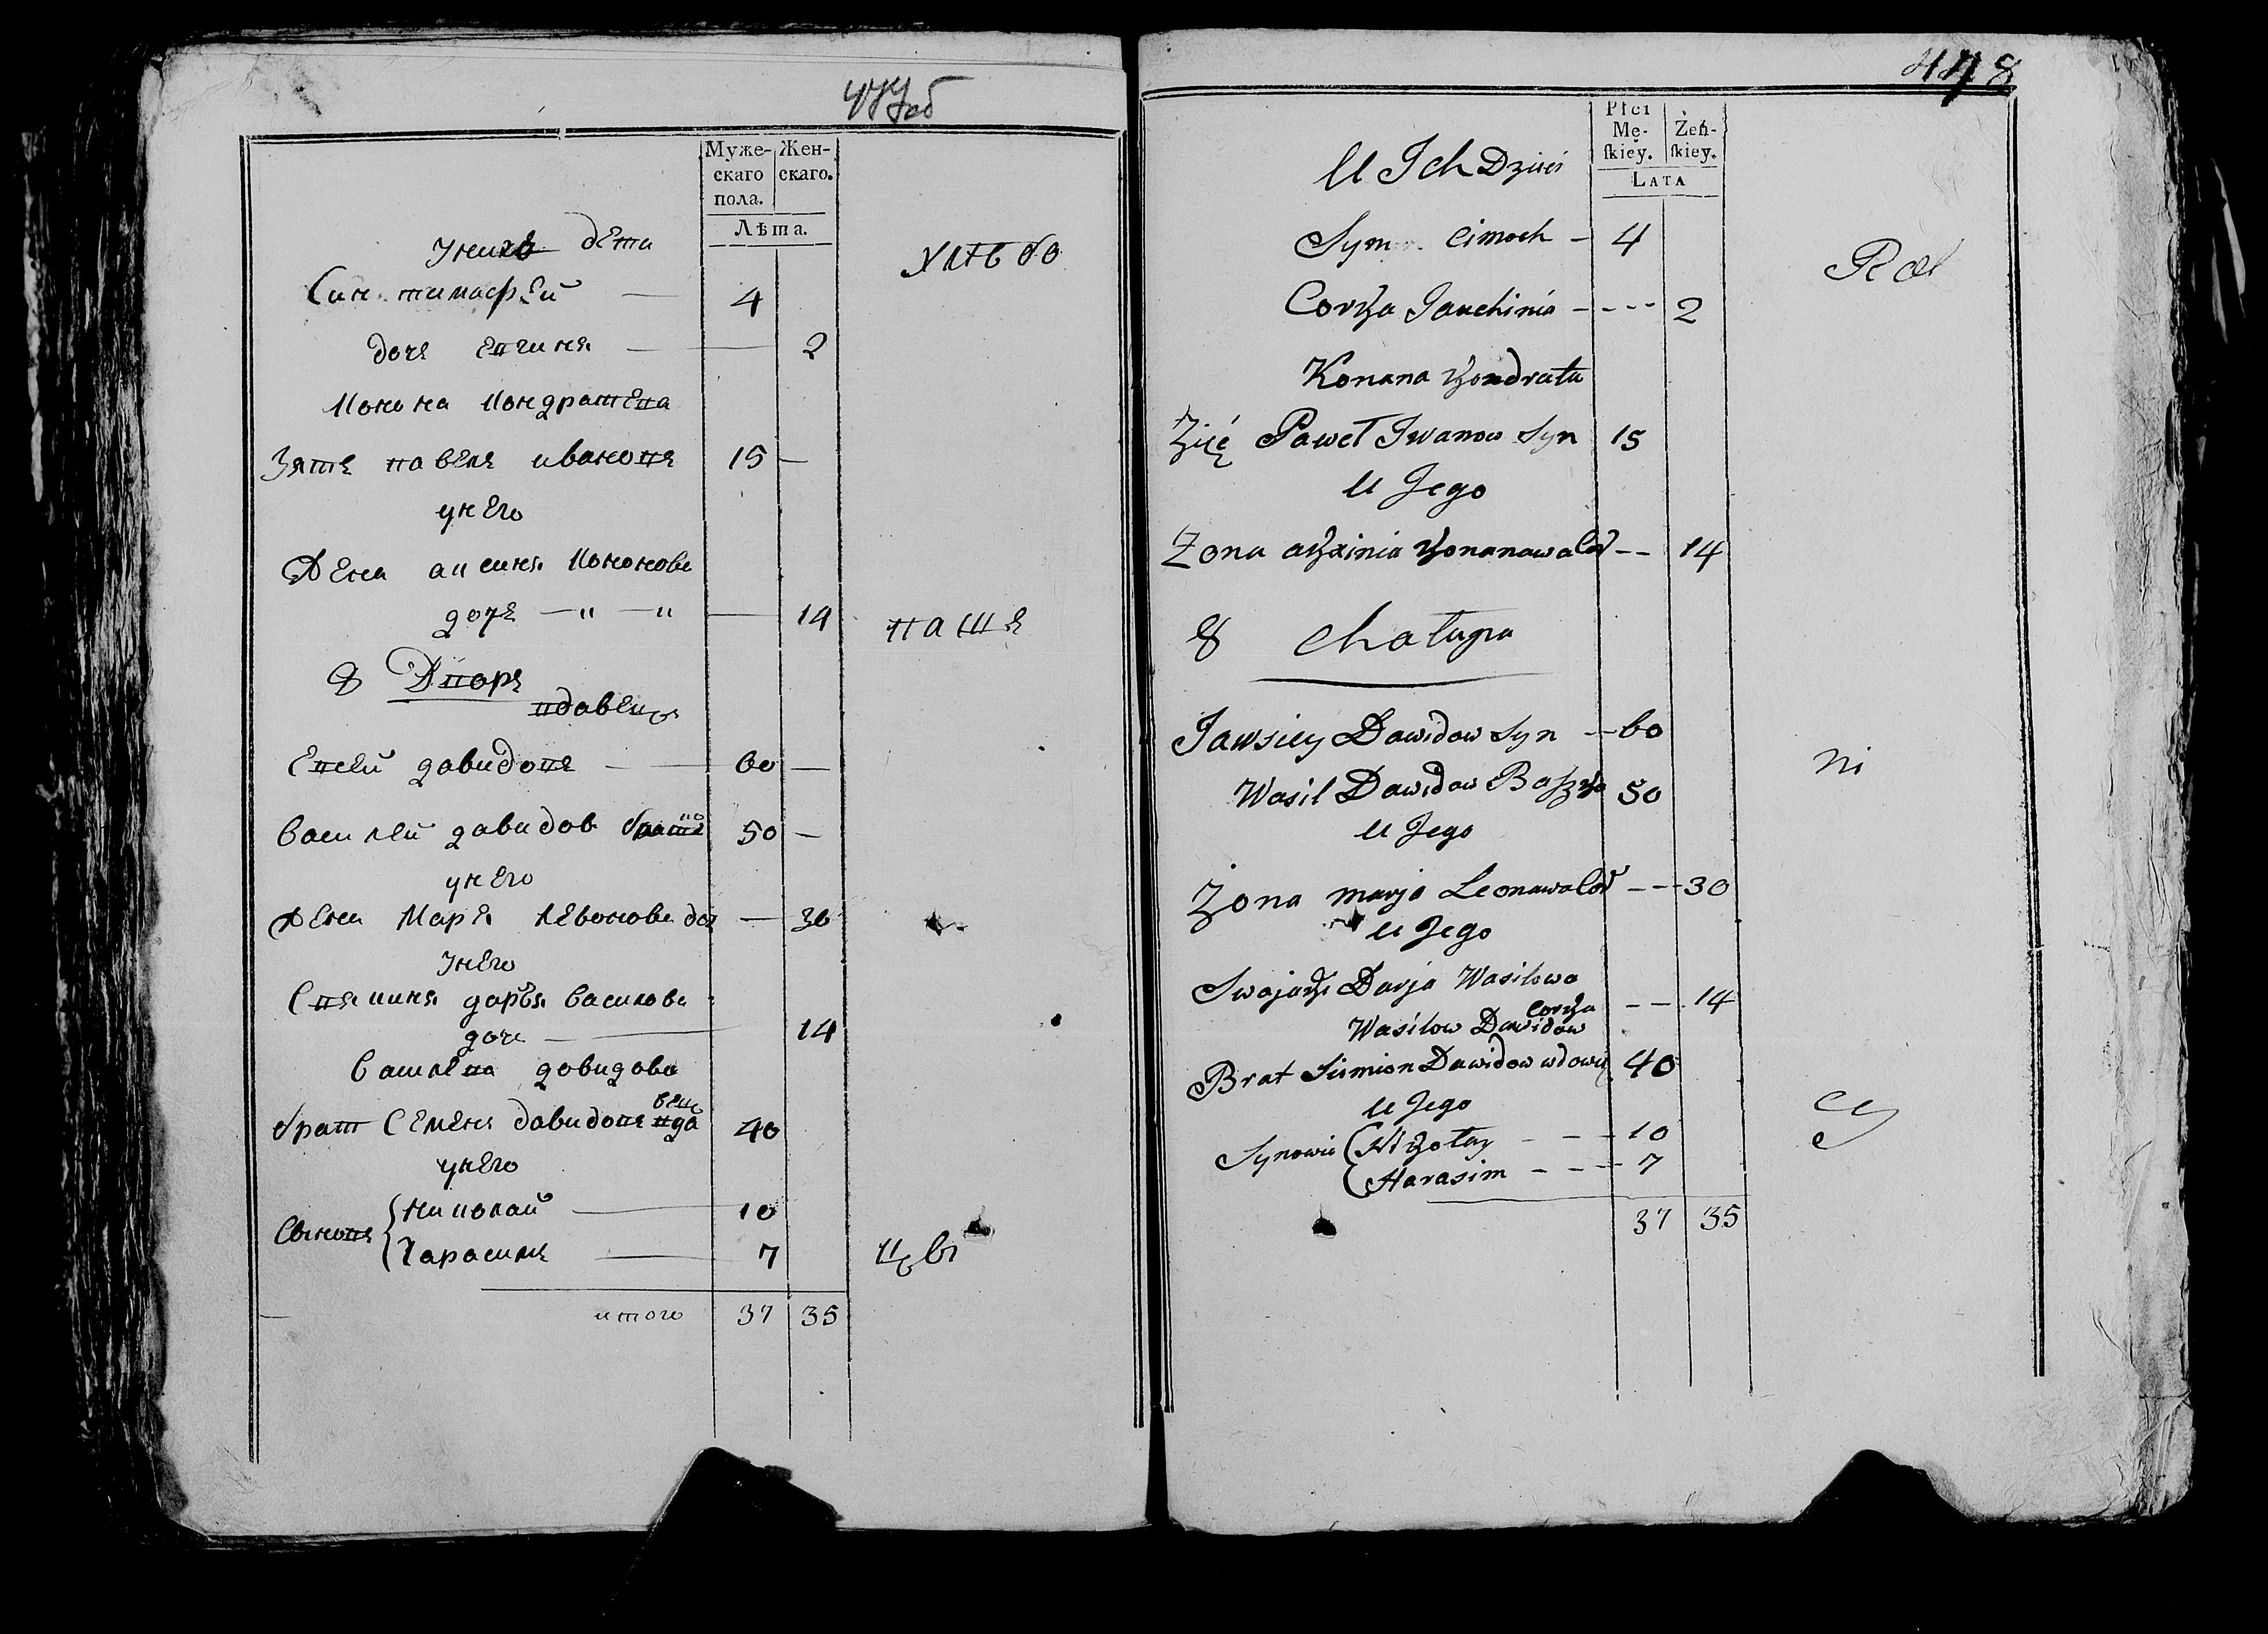 Муже-
скаго
пола.
Жен-
скаго.
Лѣта.
У них дети
Син тимасфей — 4
дочь евгиня — 2
Конона Кондратева
Зять павель ивановъ 15 —
у него
Жена аксиня Кононова
дочь — " — " — 14
8 Дворъ
вдавец
Евсей давидовъ — 60 —
Василей давидов братъ 50 —
у него
Жена Маря Левонова доч — 30
У него
Свячиня даря Василова
дочь — 14
Василева давидова
брат Семенъ давидовъ вдавец 40
у него
Сыновя
Николай — 10
Гарасимъ — 7
итого 37 35
хлѣбо
паше
цы
478
Płci
Mę-
skiey.
Żeń-
skiey.
LATA
U Ich Dzieci
Syn Cimoch - 4
Corka Jauchinia - - - - 2
Konana Kondrata
Zięć Paweł Iwanow Syn 15
U Jego
Zona akxinia Konanowa Cor -- 14
8 Chałupa
Jawsiey Dawidow Syn -- 60
Wasil Dawidow 50
U Jego
Zona marja Leonawa Cor -- 30
U Jego
Darja Wasilowa
Corka -- 14
Wasilow Dawidow
Brat Siemion Dawidow wdowiec 40
U Jego
Synowie
Mikołay - - - 10
Harasim - - - 7
37 35
Rol
ni
cy